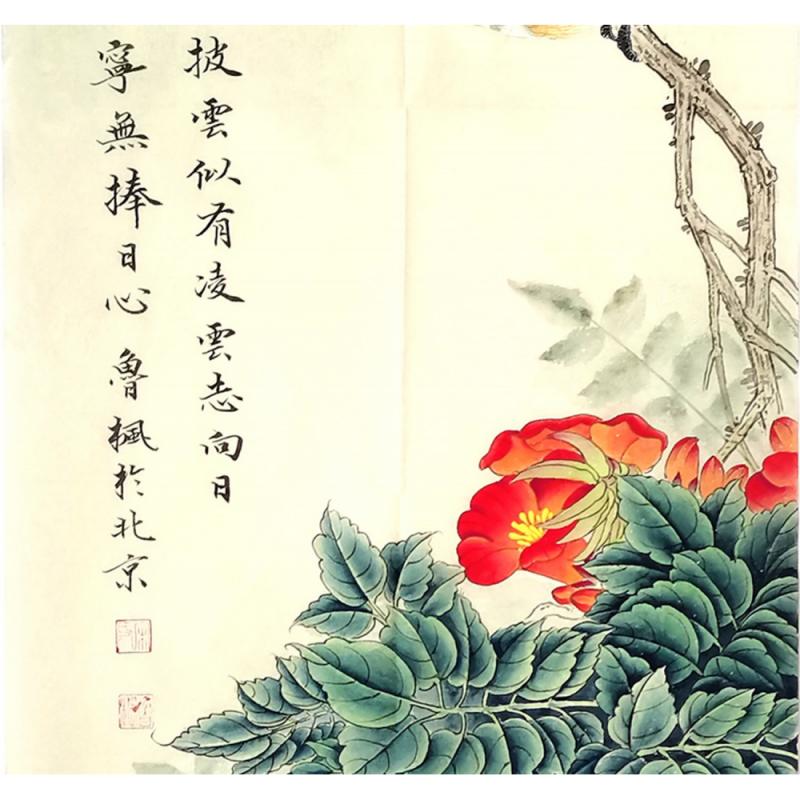 披雲似有凌雲志向日
寧無捧日心 魯楓於北京